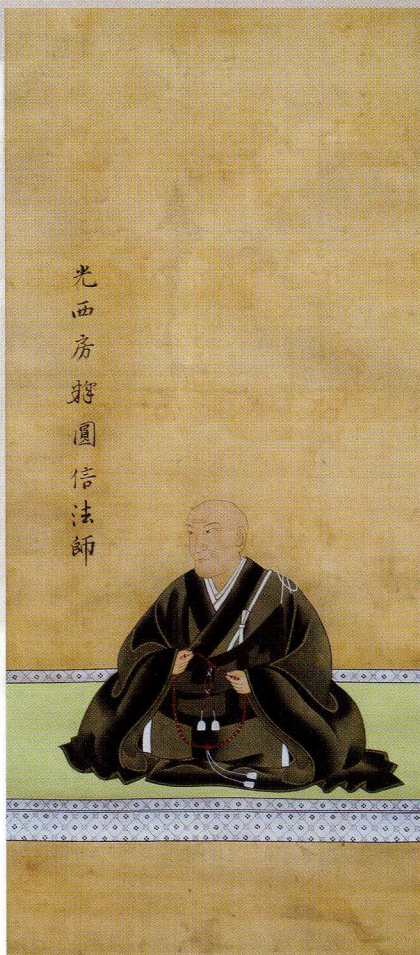 光西房釋圓信法師